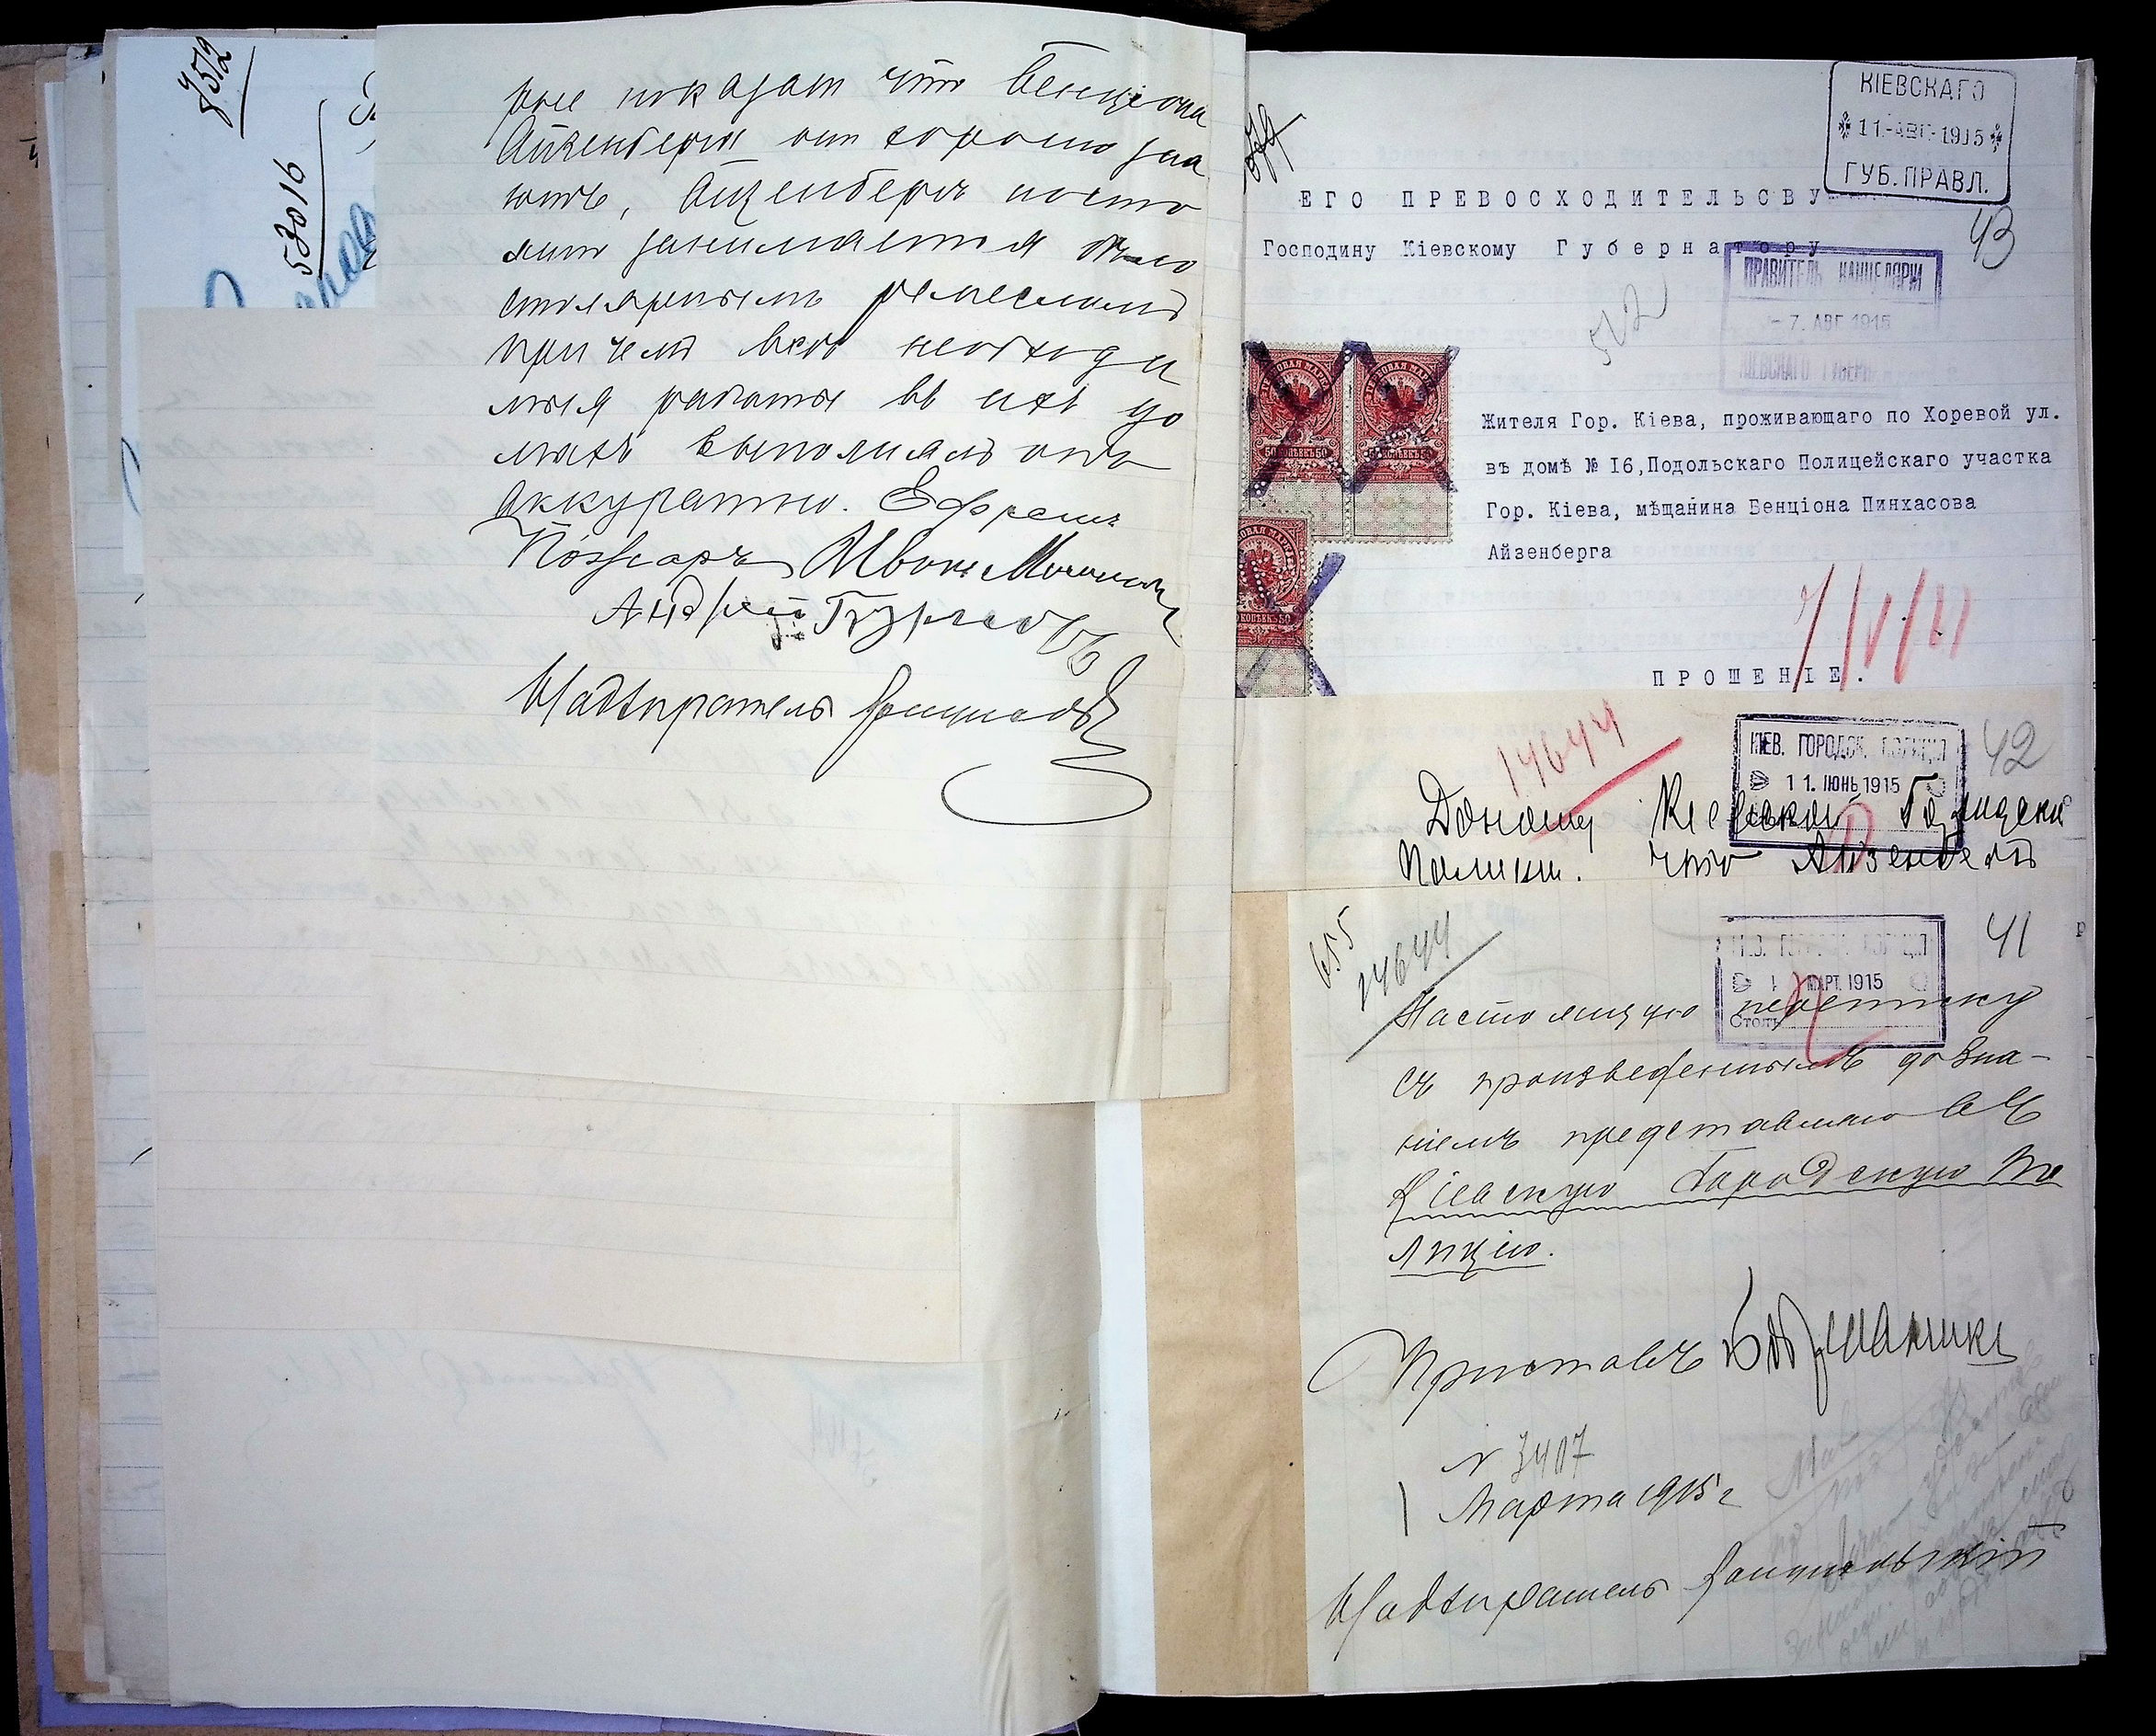 8572
53016
рые показали что Бенциона
Айзенберга они хорошо зна
ютъ, Айзенбергъ посто
янно занимается
столярнымъ ремесломъ
при чемъ всѣ необходи
мыя работы въ ихъ до
махъ выполнялъ онъ
аккуратно. Ефремъ
Пожаръ Иванъ
Андрей
Надзиратель
КІЕВСКАГО
11-АВГ-1915
ГУБ. ПРАВЛ.
ЕГО ПРЕВОСХОДИТЕЛЬСВУ
43
Господину Кіевскому Губернатору
ПРАВИТЕЛЬ КАНЦЕЛЯРІИ
-7. АВГ 1915
КІЕВСКАГО ГУБЕРН
512
ГЕРБОВАЯ МАРКА
50 КОПѢЕКЪ 50
ГЕРБОВАЯ МАРКА
50 КОПѢЕКЪ 50
КОПѢЕКЪ 50
Жителя Гор. Кіева, проживающаго по Хоревой ул.
въ домѣ № I6,Подольскаго Полицейскаго участка
Гор. Кіева, мѣщанина Бенціона Пинхасова
Айзенберга
ПРОШЕНІЕ.
14644
КІЕВ. ГОРОДСК. ПОЛИЦІЯ
11. ИЮНЬ 1915
42
Доношу Кіевской Городской
Полиціи. что Айзенбергъ
655
14644
КІЕВ. ГОРОДСК. ПОЛИЦІЯ
1 МАРТ. 1915
Столъ
41
Настоящую переписку
съ произведеннымъ дозна-
ніемъ представляю въ
Кіевскую Городскую По
лицію.
Приставъ
N 3407
1 Марта 1915 г
Надзиратель